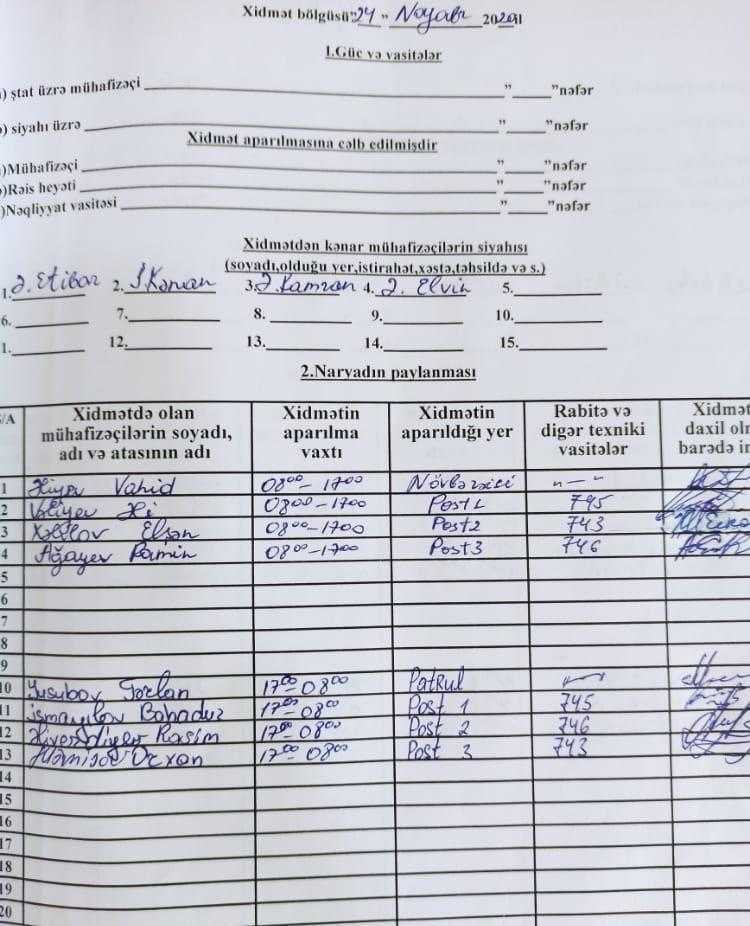 Xidmət bölgüsü "24" Noyabr 202
1.Güc və vasitələr
) ştat üzrə mühafizəçi ___ "___"nəfər
) siyahı üzrə ___ "___"nəfər
Xidmət aparılmasına cəlb edilmişdir
)Mühafizəçi ___ "___"nəfər
)Rəis heyəti ___ "___"nəfər
)Nəqliyyat vasitəsi ___ "___"nəfər
Xidmətdən kənar mühafizəçilərin siyahısı
(soyadı,olduğu yer,istirahət,xəstə,təhsildə və s.)
1. Ə. Etibar 2. İ. Kənan 3. Ə. Kamran 4. Ə. Elvin 5.___
6.___ 7.___ 8.___ 9.___ 10.___
1.___ 12.___ 13.___ 14.___ 15.___
2.Naryadın paylanması
/A Xidmətdə olan mühafizəçilərin soyadı, adı və atasının adı Xidmətin aparılma vaxtı Xidmətin aparıldığı yer Rabitə və digər texniki vasitələr Xidmət daxil olm barədə im
1 Vahid 08⁰⁰-17⁰⁰ Növbətçi -"-
2 Vəliyev 08⁰⁰-17⁰⁰ Post 1 745
3 Elşən 08⁰⁰-17⁰⁰ Post 2 743
4 Ağayev Ramin 08⁰⁰-17⁰⁰ Post 3 746
5
6
7
8
9
10 Yusubov Tərlan 17⁰⁰-08⁰⁰ Patrul
11 İsmayılov Bahadur 17⁰⁰-08⁰⁰ Post 1 745
12 Rasim 17⁰⁰-08⁰⁰ Post 2 746
13 Orxan 17⁰⁰-08⁰⁰ Post 3 743
14
15
16
17
18
19
20